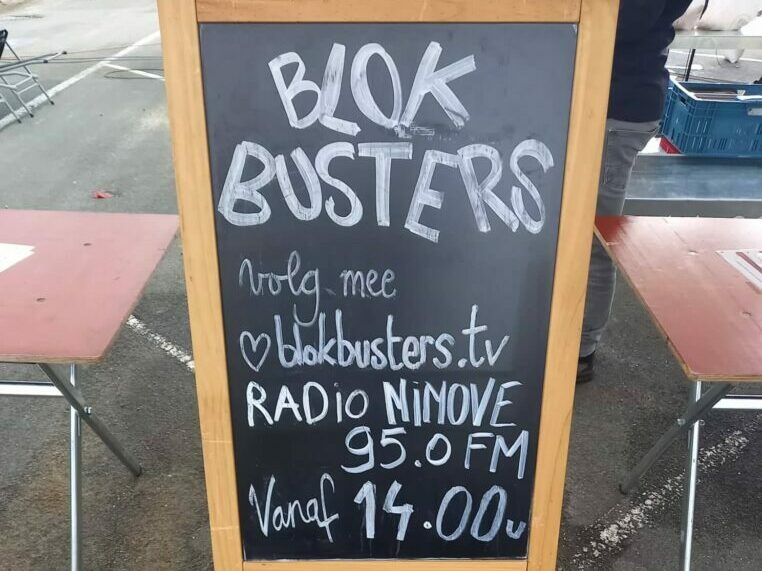 BLOK
BUSTERS
volg mee
♡ blokbusters.tv
RADiO NiNOVE
95.0 FM
Vanaf 14.00u